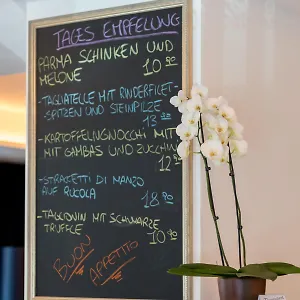 TAGES EMPFELUNG
PARMA SCHINKEN UND
MELONE 10 90
- TAGLIATELLE MIT RINDERFILET-
SPITZEN UND STEINPILZE
13 90
- KARTOFFELNGNOCCHI MIT
MIT GAMBAS UND ZUCCHINI
12 90
- STRACCETTI DI MANZO
AUF RUCOLA 18 90
- TAGLIOLINI MIT SCHWARZE
TRÜFFLE 10 90
BUON
APPETITO